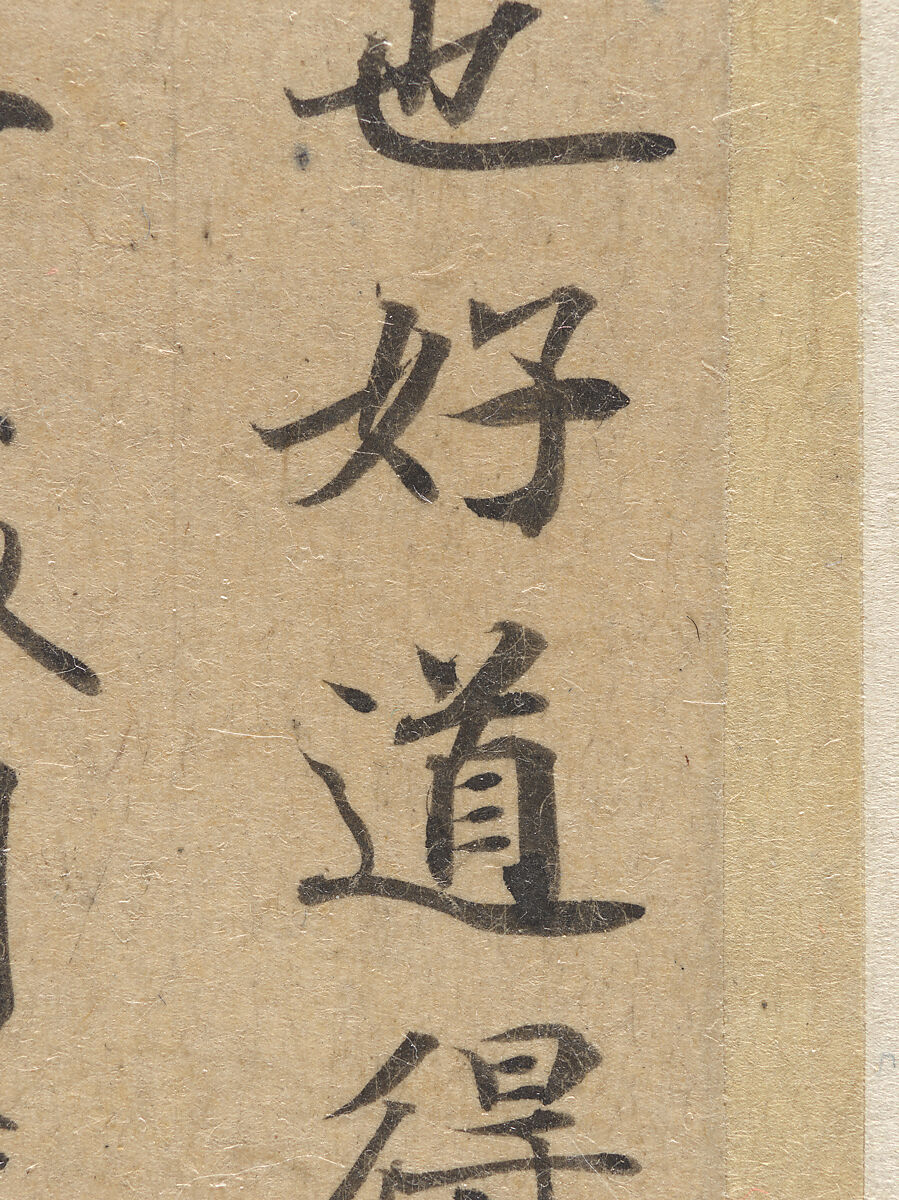 也好道得